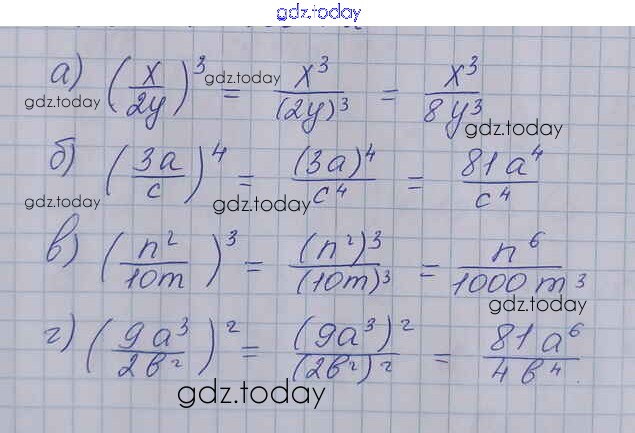 gdz.today
gdz.today
а) (x/2y)³ = x³/(2y)³ = x³/8y³
gdz.today
gdz.today
gdz.today
б) (3a/c)⁴ = (3a)⁴/c⁴ = 81a⁴/c⁴
gdz.today
gdz.today
в) (n²/10m)³ = (n²)³/(10m)³ = n⁶/1000m³
gdz.today
г) (9a³/2b²)² = (9a³)²/(2b²)² = 81a⁶/4b⁴.
gdz.today